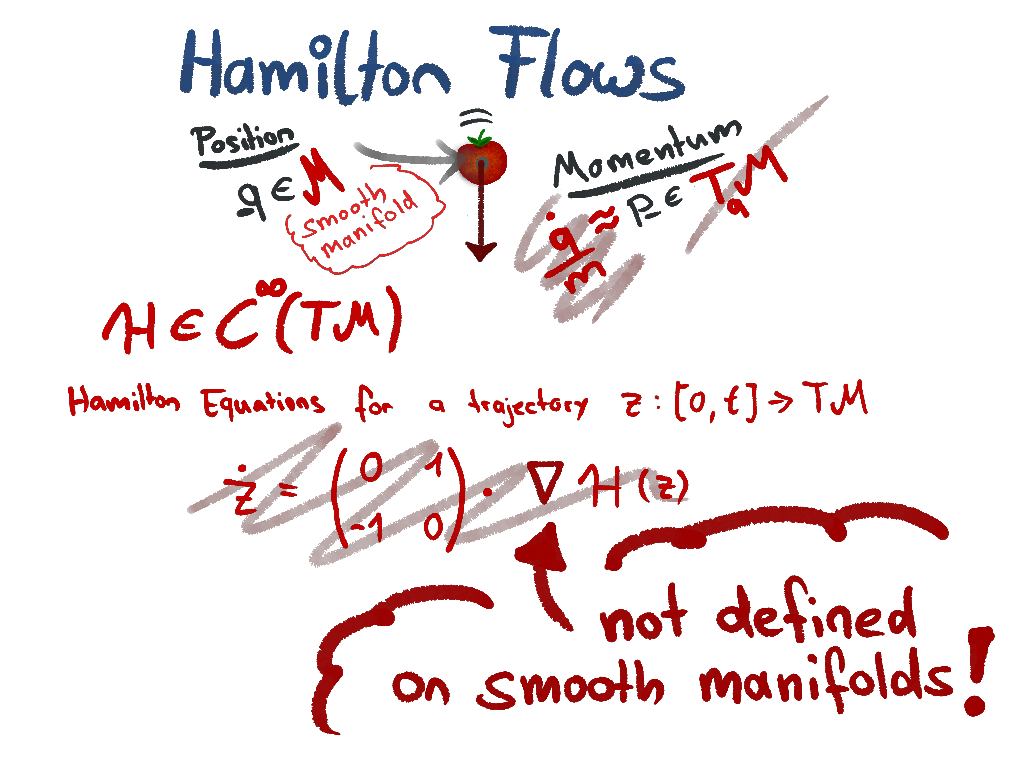 Hamilton Flows
Position
q ∈ M
smooth
manifold
Momentum
q̇/m ≈ p ∈ T_qM
H ∈ C^∞(TM)
Hamilton Equations for a trajectory z : [0, t] → TM
ż = (0 1 -1 0) · ∇ H (z)
not defined
on smooth manifolds!